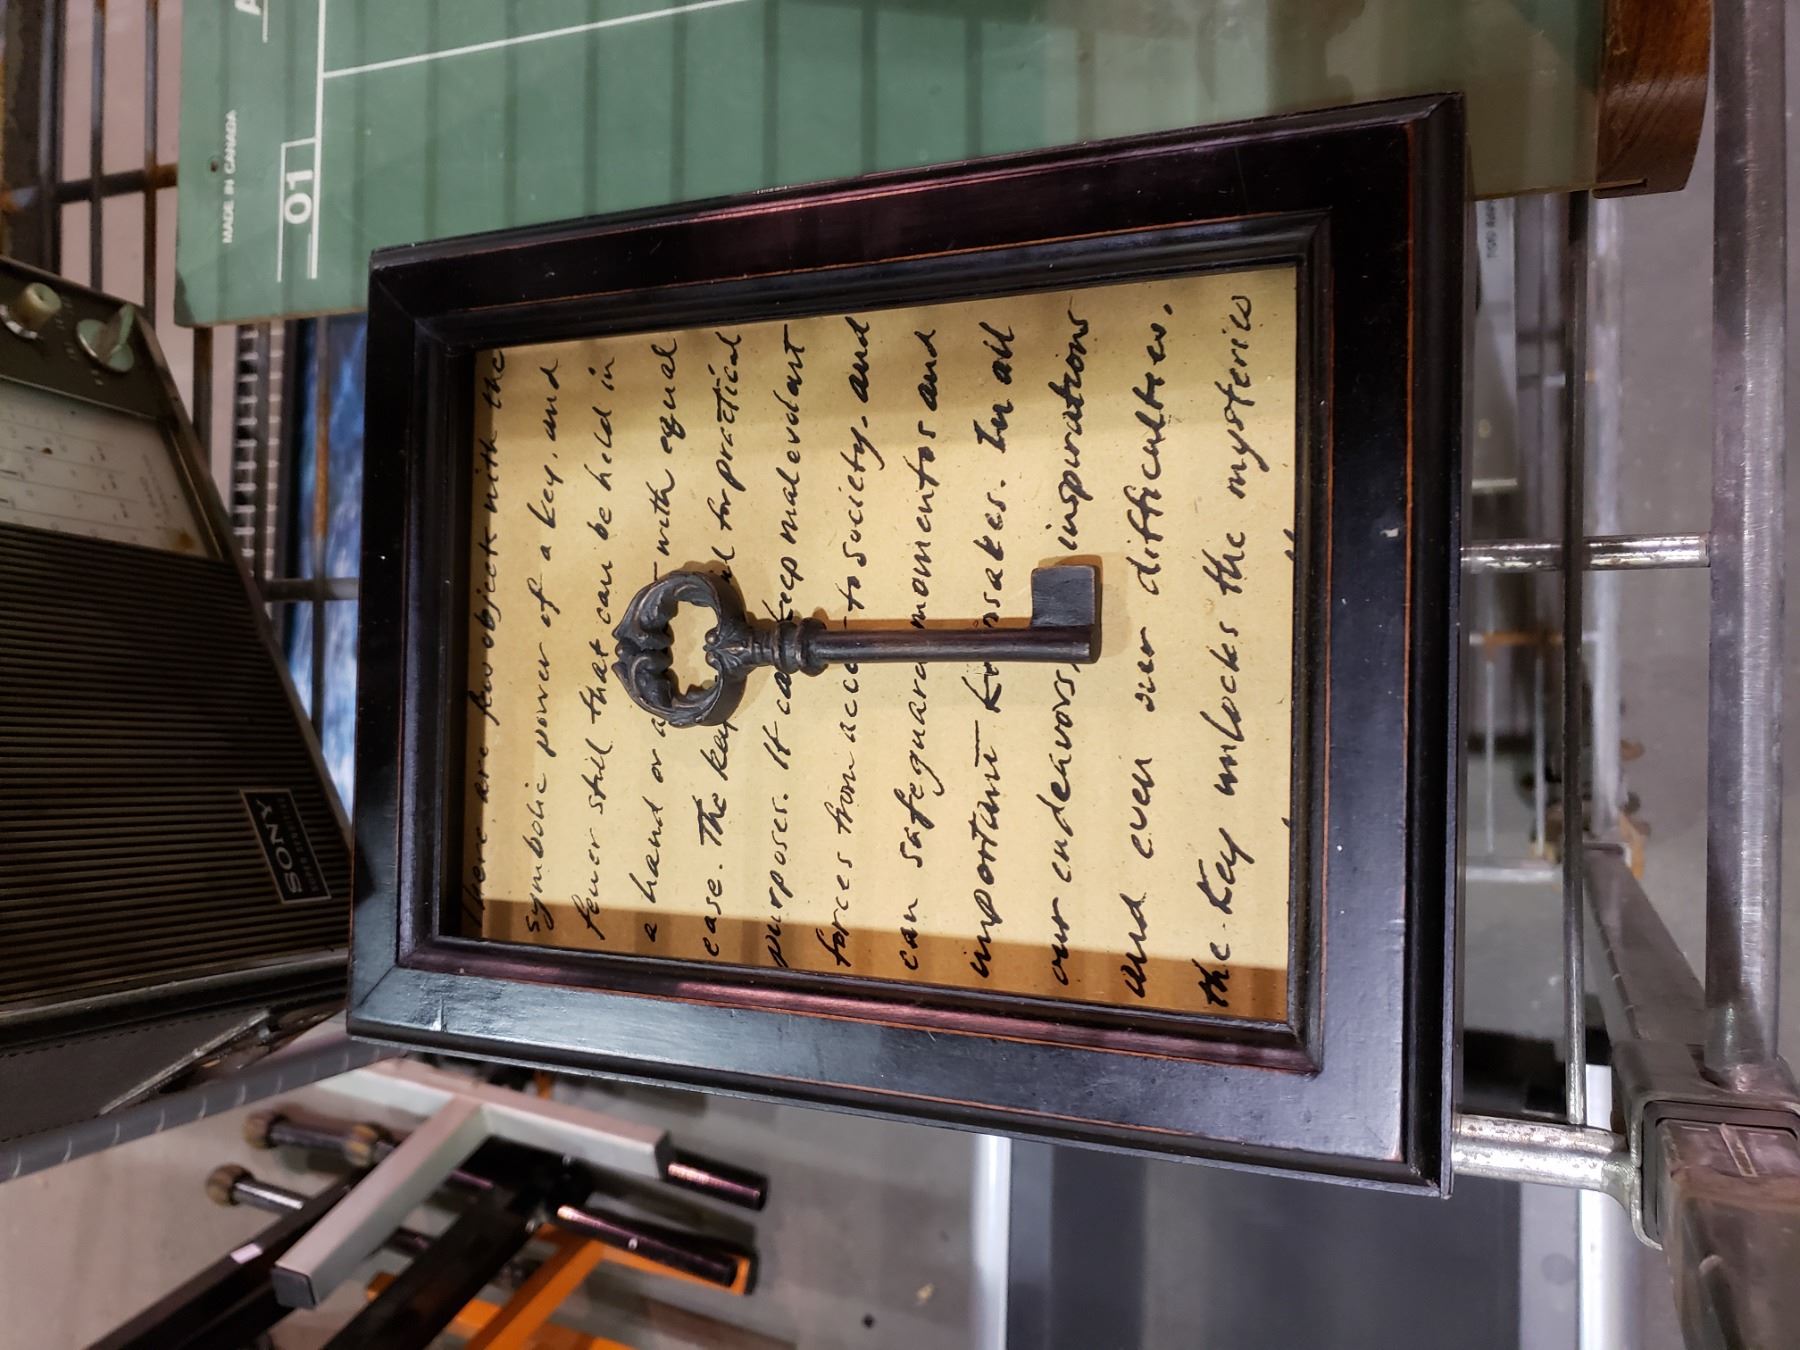 There are few objects with the
symbolic power of a key, and
fewer still that can be held in
a hand or a with equal
ease. The key for practical
purposes. It can keep malevolant
forces from acce to society, and
can safeguard momentos and
important keepsakes. In all
our endeavors, inspirations
and even our difficulties,
the key unlocks the mysteries
SONY
MADE IN CANADA
01